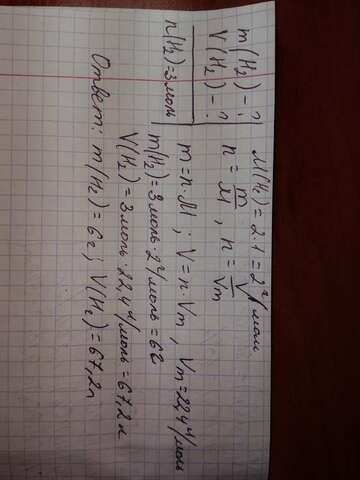 m(H₂) – ?
V(H₂) – ?
n(H₂) = 3 моль
M(H₂) = 2·1 = 2 г/моль
n = m/M , n = V/Vm
m = n·M ; V = n·Vm , Vm = 22,4 л/моль
m(H₂) = 3 моль · 2 г/моль = 6г
V(H₂) = 3 моль · 22,4 л/моль = 67,2 л
Ответ: m(H₂) = 6г ; V(H₂) = 67,2л